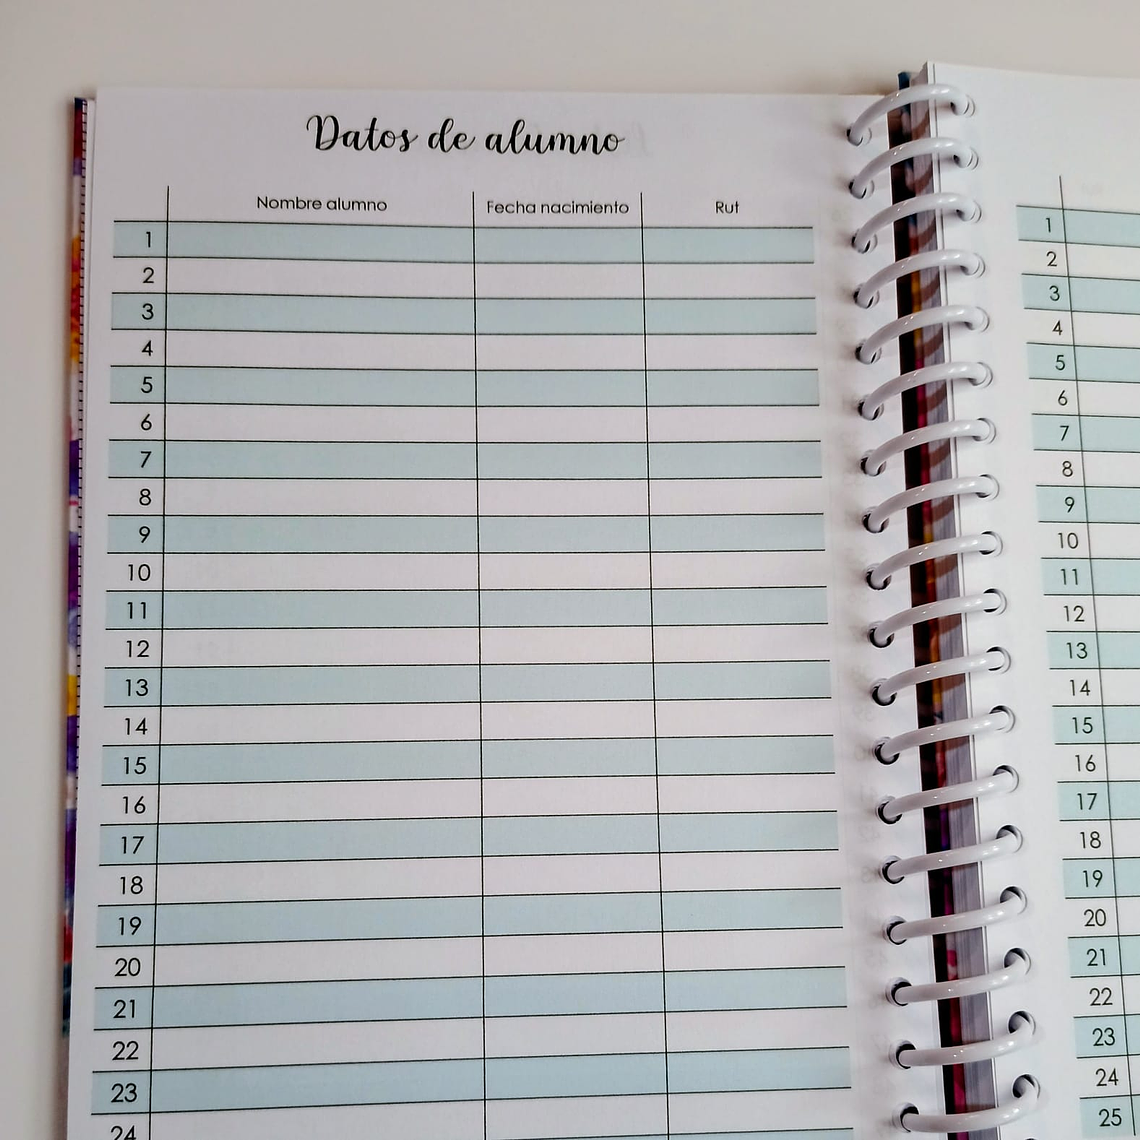 Datos de alumno
Nombre alumno Fecha nacimiento Rut
1
2
3
4
5
6
7
8
9
10
11
12
13
14
15
16
17
18
19
20
21
22
23
24
1
2
3
4
5
6
7
8
9
10
11
12
13
14
15
16
17
18
19
20
21
22
23
24
25